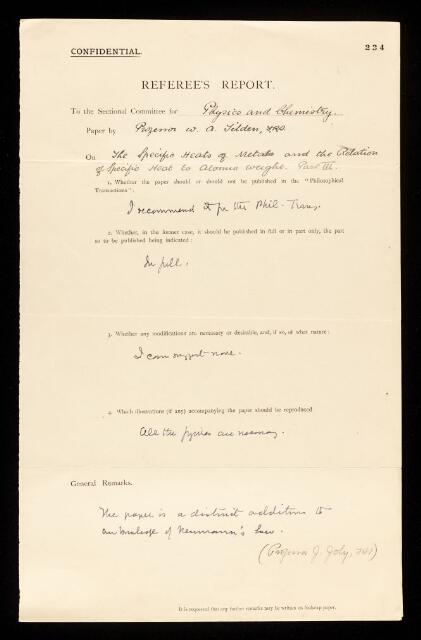 CONFIDENTIAL.
224
REFEREE'S REPORT.
To the Sectional Committee for Physics and Chemistry.
Paper by Professor W. A. Tilden, FRS.
On The Specific Heats of Metals and the Relation
of Specific Heat to Atomic Weight. Part III.
1. Whether the paper should or should not be published in the "Philosophical
Transactions":
I recommend it for the Phil. Trans.
2. Whether, in the former case, it should be published in full or in part only, the part
so to be published being indicated:
In full.
3. Whether any modifications are necessary or desirable, and, if so, of what nature:
I can suggest none.
4. Which illustrations (if any) accompanying the paper should be reproduced
All the figures are necessary.
General Remarks.
The paper is a distinct addition to
our knowledge of Neumann's Law.
(Professor J. Joly, FRS)
It is requested that any further remarks may be written on foolscap paper.